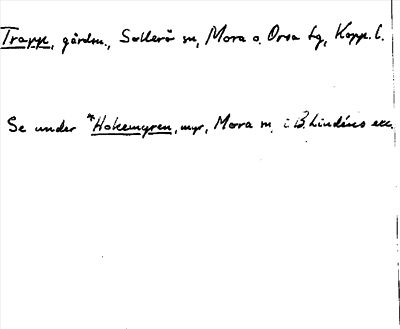 Trapp, gårdsn., Sollerö sn, Mora o. Orsa tg, Kopp. l.
Se under *Hokemyren, myr, Mora sn, i B. Lindéns exc.